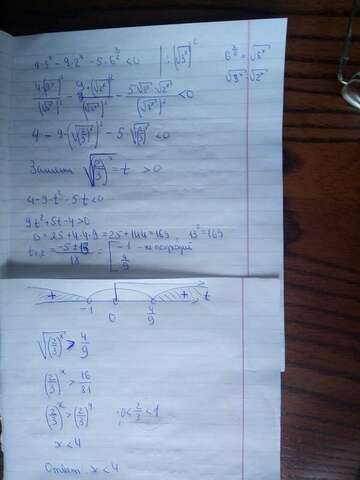 4·3ˣ - 9·2ˣ - 5·6^(x/2) < 0 | : (√3ˣ)² 6^(x/2) = √6ˣ
√3ˣ · √2ˣ
4(√3ˣ)²/(√3ˣ)² - 9·(√2ˣ)²/(√3ˣ)² - 5√3ˣ·√2ˣ/(√3ˣ)² < 0
4 - 9·(√(2/3)ˣ)² - 5√(2/3)ˣ < 0
Замена √(2/3)ˣ = t > 0
4 - 9·t² - 5t < 0
9t² + 5t - 4 > 0
D = 25 + 4·4·9 = 25 + 144 = 169, 13² = 169
t₁,₂ = (-5 ± 13)/18 = [ -1
4/9
+ +
-1 0 4/9 t
√(2/3)ˣ > 4/9
(2/3)ˣ > 16/81
(2/3)ˣ > (2/3)⁴ 0 < 2/3 < 1
x < 4
Ответ x < 4